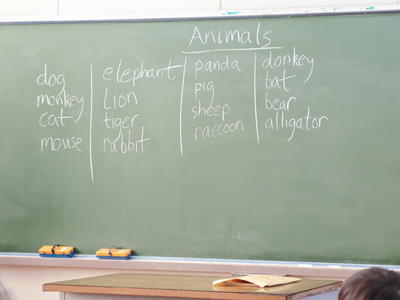 Animals
dog
monkey
cat
mouse
elephant
Lion
tiger
rabbit
panda
pig
sheep
raccoon
donkey
bat
bear
alligator